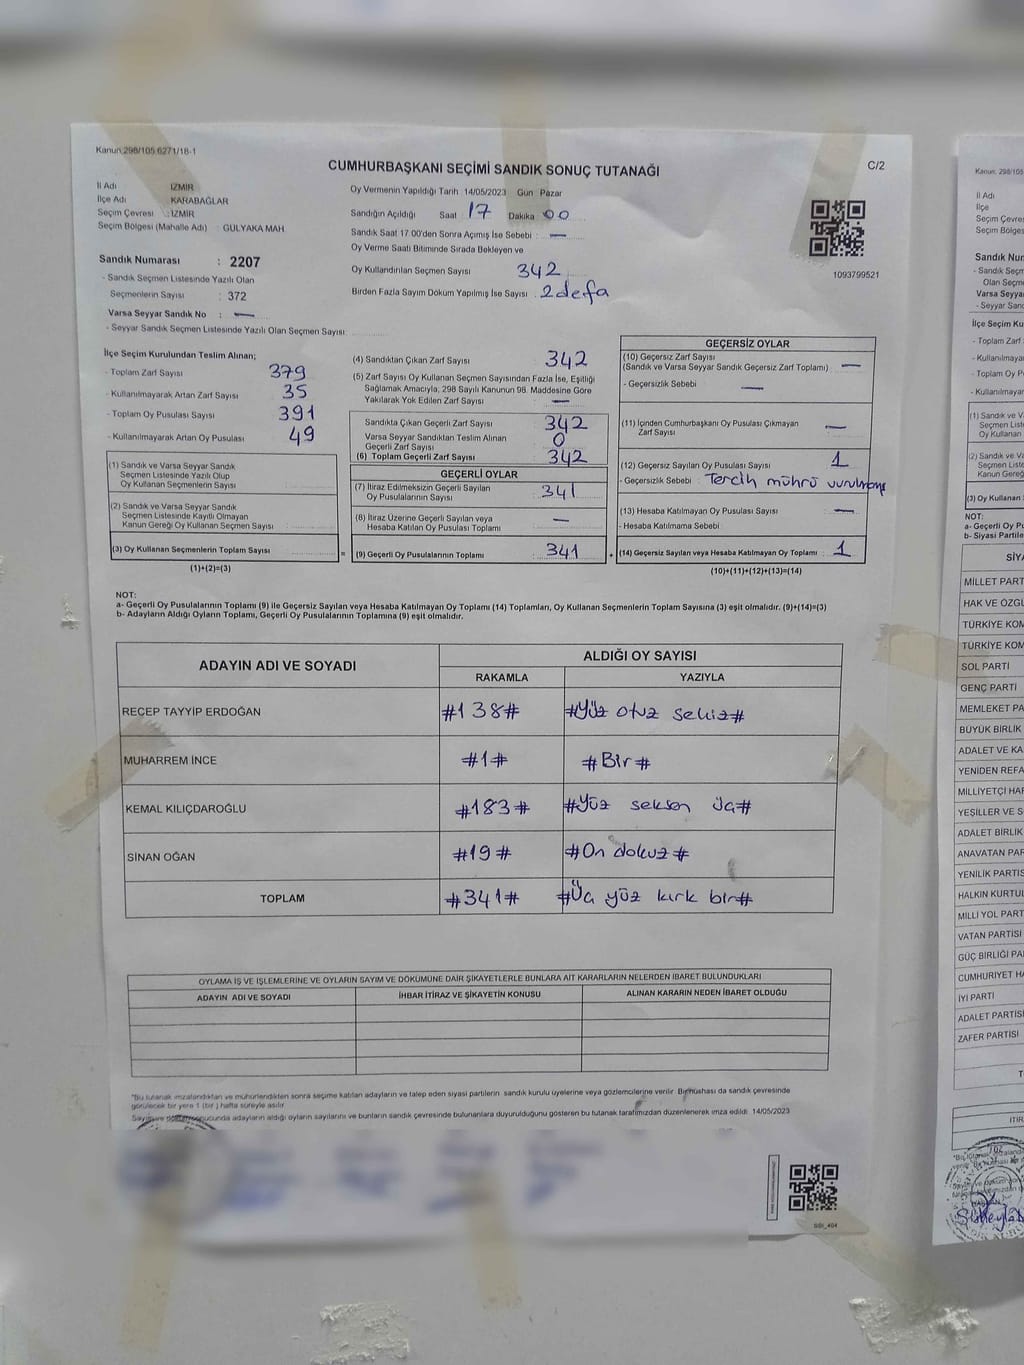 Kanun:298/105.6271/18-1
CUMHURBAŞKANI SEÇİMİ SANDIK SONUÇ TUTANAĞI
C/2
İl Adı İZMİR
İlçe Adı KARABAĞLAR
Seçim Çevresi : İZMİR
Seçim Bölgesi (Mahalle Adı) : GÜLYAKA MAH.
Sandık Numarası : 2207
- Sandık Seçmen Listesinde Yazılı Olan
Seçmenlerin Sayısı : 372
Varsa Seyyar Sandık No : —
- Seyyar Sandık Seçmen Listesinde Yazılı Olan Seçmen Sayısı:
Oy Vermenin Yapıldığı Tarih 14/05/2023 Gün Pazar
Sandığın Açıldığı Saat 17 Dakika 00
Sandık Saat 17.00'den Sonra Açımış İse Sebebi : —
Oy Verme Saati Bitiminde Sırada Bekleyen ve
Oy Kullandırılan Seçmen Sayısı 342
Birden Fazla Sayım Döküm Yapılmış İse Sayısı : 2 defa
1093799521
İlçe Seçim Kurulundan Teslim Alınan;
- Toplam Zarf Sayısı 379
- Kullanılmayarak Artan Zarf Sayısı 35
- Toplam Oy Pusulası Sayısı 391
- Kullanılmayarak Artan Oy Pusulası 49
(1) Sandık ve Varsa Seyyar Sandık
Seçmen Listesinde Yazılı Olup
Oy Kullanan Seçmenlerin Sayısı
(2) Sandık ve Varsa Seyyar Sandık
Seçmen Listesinde Kayıtlı Olmayan
Kanun Gereği Oy Kullanan Seçmen Sayısı
(3) Oy Kullanan Seçmenlerin Toplam Sayısı =
(1)+(2)=(3)
(4) Sandıktan Çıkan Zarf Sayısı 342
(5) Zarf Sayısı Oy Kullanan Seçmen Sayısından Fazla İse, Eşitliği
Sağlamak Amacıyla, 298 Sayılı Kanunun 98. Maddesine Göre
Yakılarak Yok Edilen Zarf Sayısı —
Sandıkta Çıkan Geçerli Zarf Sayısı 342
Varsa Seyyar Sandıktan Teslim Alınan
Geçerli Zarf Sayısı 0
(6) Toplam Geçerli Zarf Sayısı 342
GEÇERLİ OYLAR
(7) İtiraz Edilmeksizin Geçerli Sayılan
Oy Pusulalarının Sayısı 341
(8) İtiraz Üzerine Geçerli Sayılan veya
Hesaba Katılan Oy Pusulası Toplamı —
(9) Geçerli Oy Pusulalarının Toplamı 341 +
GEÇERSİZ OYLAR
(10) Geçersiz Zarf Sayısı
(Sandık ve Varsa Seyyar Sandık Geçersiz Zarf Toplamı) : —
- Geçersizlik Sebebi : —
(11) İçinden Cumhurbaşkanı Oy Pusulası Çıkmayan
Zarf Sayısı —
(12) Geçersiz Sayılan Oy Pusulası Sayısı 1
- Geçersizlik Sebebi : Tercih mührü vurulmamış
(13) Hesaba Katılmayan Oy Pusulası Sayısı —
- Hesaba Katılmama Sebebi
(14) Geçersiz Sayılan veya Hesaba Katılmayan Oy Toplamı : 1
(10)+(11)+(12)+(13)=(14)
NOT:
a- Geçerli Oy Pusulalarının Toplamı (9) ile Geçersiz Sayılan veya Hesaba Katılmayan Oy Toplamı (14) Toplamları, Oy Kullanan Seçmenlerin Toplam Sayısına (3) eşit olmalıdır. (9)+(14)=(3)
b- Adayların Aldığı Oyların Toplamı, Geçerli Oy Pusulalarının Toplamına (9) eşit olmalıdır.
ADAYIN ADI VE SOYADI ALDIĞI OY SAYISI
RAKAMLA YAZIYLA
RECEP TAYYİP ERDOĞAN #138# #Yüz otuz sekiz#
MUHARREM İNCE #1# #Bir#
KEMAL KILIÇDAROĞLU #183# #Yüz seksen üç#
SİNAN OĞAN #19# #On dokuz#
TOPLAM #341# #Üç yüz kırk bir#
OYLAMA İŞ VE İŞLEMLERİNE VE OYLARIN SAYIM VE DÖKÜMÜNE DAİR ŞİKAYETLERLE BUNLARA AİT KARARLARIN NELERDEN İBARET BULUNDUKLARI
ADAYIN ADI VE SOYADI İHBAR İTİRAZ VE ŞİKAYETİN KONUSU ALINAN KARARIN NEDEN İBARET OLDUĞU
*Bu tutanak imzalandıktan ve mühürlendikten sonra seçime katılan adayların ve talep eden siyasi partilerin sandık kurulu üyelerine veya gözlemcilerine verilir. Bir nüshası da sandık çevresinde
görülecek bir yere 1 (bir) hafta süreyle asılır.
Sayım ve döküm sonucunda adayların aldığı oyların sayılarını ve bunların sandık çevresinde bulunanlara duyurulduğunu gösteren bu tutanak tarafımızdan düzenlenerek imza edildi. 14/05/2023
SSI_404
Kanun: 298/105
İl Adı
İlçe
Seçim Çevres
Seçim Bölges
Sandık Num
- Sandık Seçm
Olan Seçm
Varsa Seyya
- Seyyar Sand
İlçe Seçim Ku
- Toplam Zarf
- Kullanılmaya
- Toplam Oy P
- Kullanılmayar
(1) Sandık ve Var
Seçmen Liste
Oy Kullanan
(2) Sandık ve Var
Seçmen Liste
Kanun Gereğ
(3) Oy Kullanan S
NOT:
a- Geçerli Oy Pu
b- Siyasi Partile
SİYA
MİLLET PART
HAK VE ÖZGÜ
TÜRKİYE KOM
TÜRKİYE KOM
SOL PARTİ
GENÇ PARTİ
MEMLEKET PA
BÜYÜK BİRLİK
ADALET VE KA
YENİDEN REFA
MİLLİYETÇİ HAR
YEŞİLLER VE S
ADALET BİRLİK
ANAVATAN PAR
YENİLİK PARTİS
HALKIN KURTUL
MİLLİ YOL PART
VATAN PARTİSİ
GÜÇ BİRLİĞİ PA
CUMHURİYET HA
İYİ PARTİ
ADALET PARTİSİ
ZAFER PARTİSİ
T
İTİR